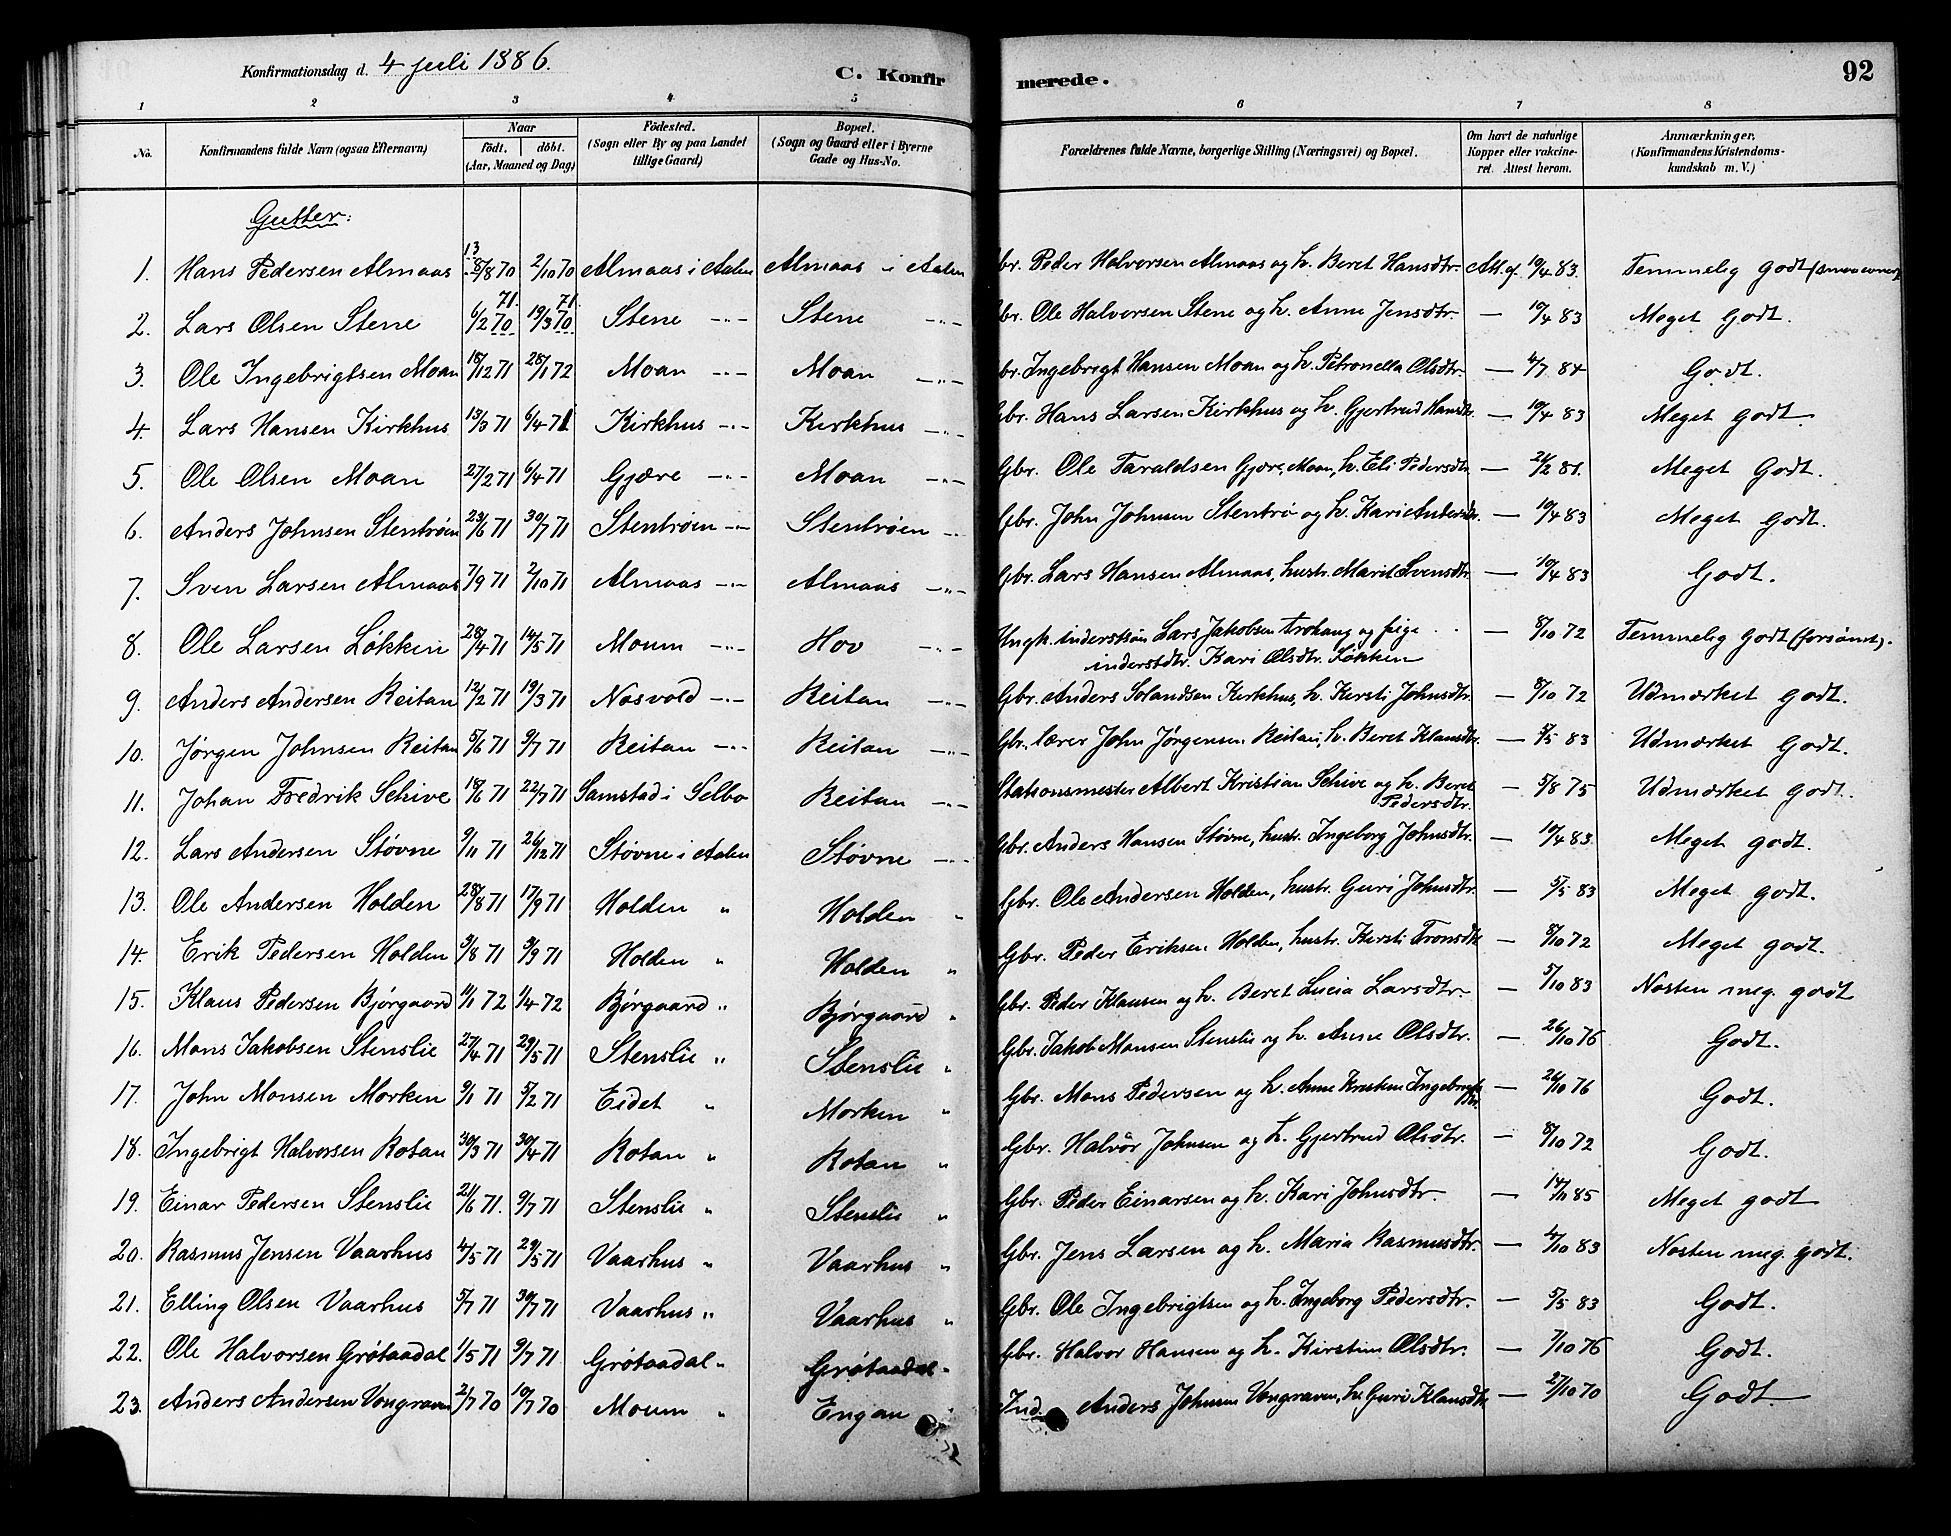 Konfirmationsdag d. 4 Juli 1886. C. Konfirmerede. 92
1 2 3 4 5 6 7 8
No. Konfirmandens fulde Navn (ogsaa Efternavn) Naar født. døbt. (Aar, Maaned og Dag) Födested. (Sogn eller By og paa Landet tillige Gaard) Bopæl. (Sogn og Gaard eller i Byerne Gade og Hus-No. Forældrenes fulde Navne, borgerlige Stilling (Næringsvei) og Bopæl. Om havt de naturlige Kopper eller vakcineret. Attest herom. Anmærkninger. (Konfirmandens Kristendomskundskab m. V.)
Gutter:
1. Hans Pedersen Almaas 13/8 70 2/10 70 Almaas i Aalen Almaas i Aalen Gbr. Peder Halvorsen Almaas og h. Beret Hansdtr. Att. af 10/4 83. Temmelig godt (smaa evner)
2. Lars Olsen Stene 6/2 70 71. 19/3 70 71. Stene -"- Stene -"- Gbr. Ole Halvorsen Stene og h. Anne Jensdtr. — 10/4 83 Meget godt.
3. Ole Ingebrigtsen Moan 18/12 71 28/1 72 Moan -"- Moan -"- Gbr. Ingebrigt Hansen Moan og h. Petronella Olsdtr. — 4/7 84 Godt.
4. Lars Hansen Kirkhus 13/3 71 6/4 71 Kirkhus -"- Kirkhus -"- Gbr. Hans Larsen Kirkhus og h. Gjertrud Hansdtr — 10/4 83 Meget godt.
5. Ole Olsen Moan 27/2 71 6/4 71 Gjære -"- Moan -"- Gbr. Ole Taraldsen Gjære, Moan, h. Eli Pedersdtr. — 24/2 81. Meget Godt.
6. Anders Johnsen Stentrøen 23/6 71 30/7 71 Stentrøen -"- Stentrøen -"- Gbr. John Johnsen Stentrø og h. Kari Andersdtr. — 10/4 83 Meget godt.
7. Sven Larsen Almaas 7/9 71 2/10 71 Almaas -"- Almaas -"- Gbr. Lars Hansen Almaas, hustr. Marit Svensdtr. — 10/4 83 Godt.
8. Ole Larsen Løkken 28/4 71 14/5 71 Moum -"- Hov -"- Ungk. inderstsøn Lars Jakobsen Trohaug og pige — 8/10 72 Temmelig godt (forsømt).
inderstdtr. Kari Olsdtr. Løkken
9. Anders Andersen Reitan 12/2 71 19/3 71 Nosvold -"- Reitan -"- Gbr. Anders Kirkhus, h. Kersti Johnsdtr. — 8/10 72 Udmærket godt.
10. Jørgen Johnsen Reitan 5/6 71 9/7 71 Reitan -"- Reitan -"- Gbr. lærer John Jørgensen Reitan, h. Beret Klausdtr. — 5/5 83 Udmærket godt.
11. Johan Fredrik Schive 18/6 71 22/7 71 Samstad i Selbo Reitan -"- Stationsmester Albert Kristian Schive og h. Beret — 5/8 75 Udmærket godt.
Pedersdtr.
12. Lars Andersen Støvne 9/11 71 26/12 71 Støvne i Aalen Støvne -"- Gbr. Anders Hansen Støvne, hustr. Ingeborg Johnsdtr. — 10/4 83. Meget godt.
13. Ole Andersen Holden 28/8 71 17/9 71 Holden " Holden " Gbr. Ole Andersen Holden, hustr. Guri Johnsdtr. — 5/5 83 Meget godt.
14. Erik Pedersen Holden 3/8 71 3/9 71 Holden " Holden " Gbr. Peder Eriksen Holden, hustr. Kersti Tronsdtr — 8/10 72 Meget godt.
15. Klaus Pedersen Bjørgaard 11/1 72 1/4 72 Bjørgaard " Bjørgaard " Gbr. Peder Klausen og h. Beret Lucia Larsdtr. — 5/10 83 Nesten meg. godt
16. Mons Jakobsen Stenslie 27/4 71 29/5 71 Stenslie " Stenslie " Gbr. Jakob Monsen Stenslie og h. Anne Olsdtr. — 26/10 76 Godt.
17. John Monsen Morken 9/1 71 5/2 71 Eidet " Morken " Gbr. Mons Pedersen og h. Anne Kirstine Ingebrigtsdtr. — 26/10 76 Godt.
18. Ingebrigt Halvorsen Rotan 30/3 71 30/4 71 Rotan " Rotan " Gbr. Halvor Johnsen og h. Gjertrud Olsdtr. — 8/10 72 Godt.
19. Einar Pedersen Stenslie 21/6 71. 9/7 71 Stenslie " Stenslie " Gbr. Peder Einarsen og h. Kari Johnsdtr. — 14/11 85 Meget godt
20. Rasmus Jensen Vaarhus 4/5 71 29/5 71 Vaarhus " Vaarhus " Gbr. Jens Larsen og h. Maria Rasmusdtr. — 4/10 83 Nesten meg. godt.
21. Elling Olsen Vaarhus 5/7 71 30/7 71 Vaarhus " Vaarhus " Gbr. Ole Ingebrigtsen og h. Ingeborg Pedersdtr. — 5/5 83 Godt.
22. Ole Halvorsen Grøtaadal 1/5 71 9/7 71 Grøtaadal " Grøtaadal " Gbr. Halvor Hansen og h. Kirstine Olsdtr. — 7/10 76 Godt.
23. Anders Andersen Vongraven 2/7 70 10/7 70 Moum " Engan Ind. Anders Johnsen Vongraven, h. Guri Klausdtr — 27/10 70 Godt.